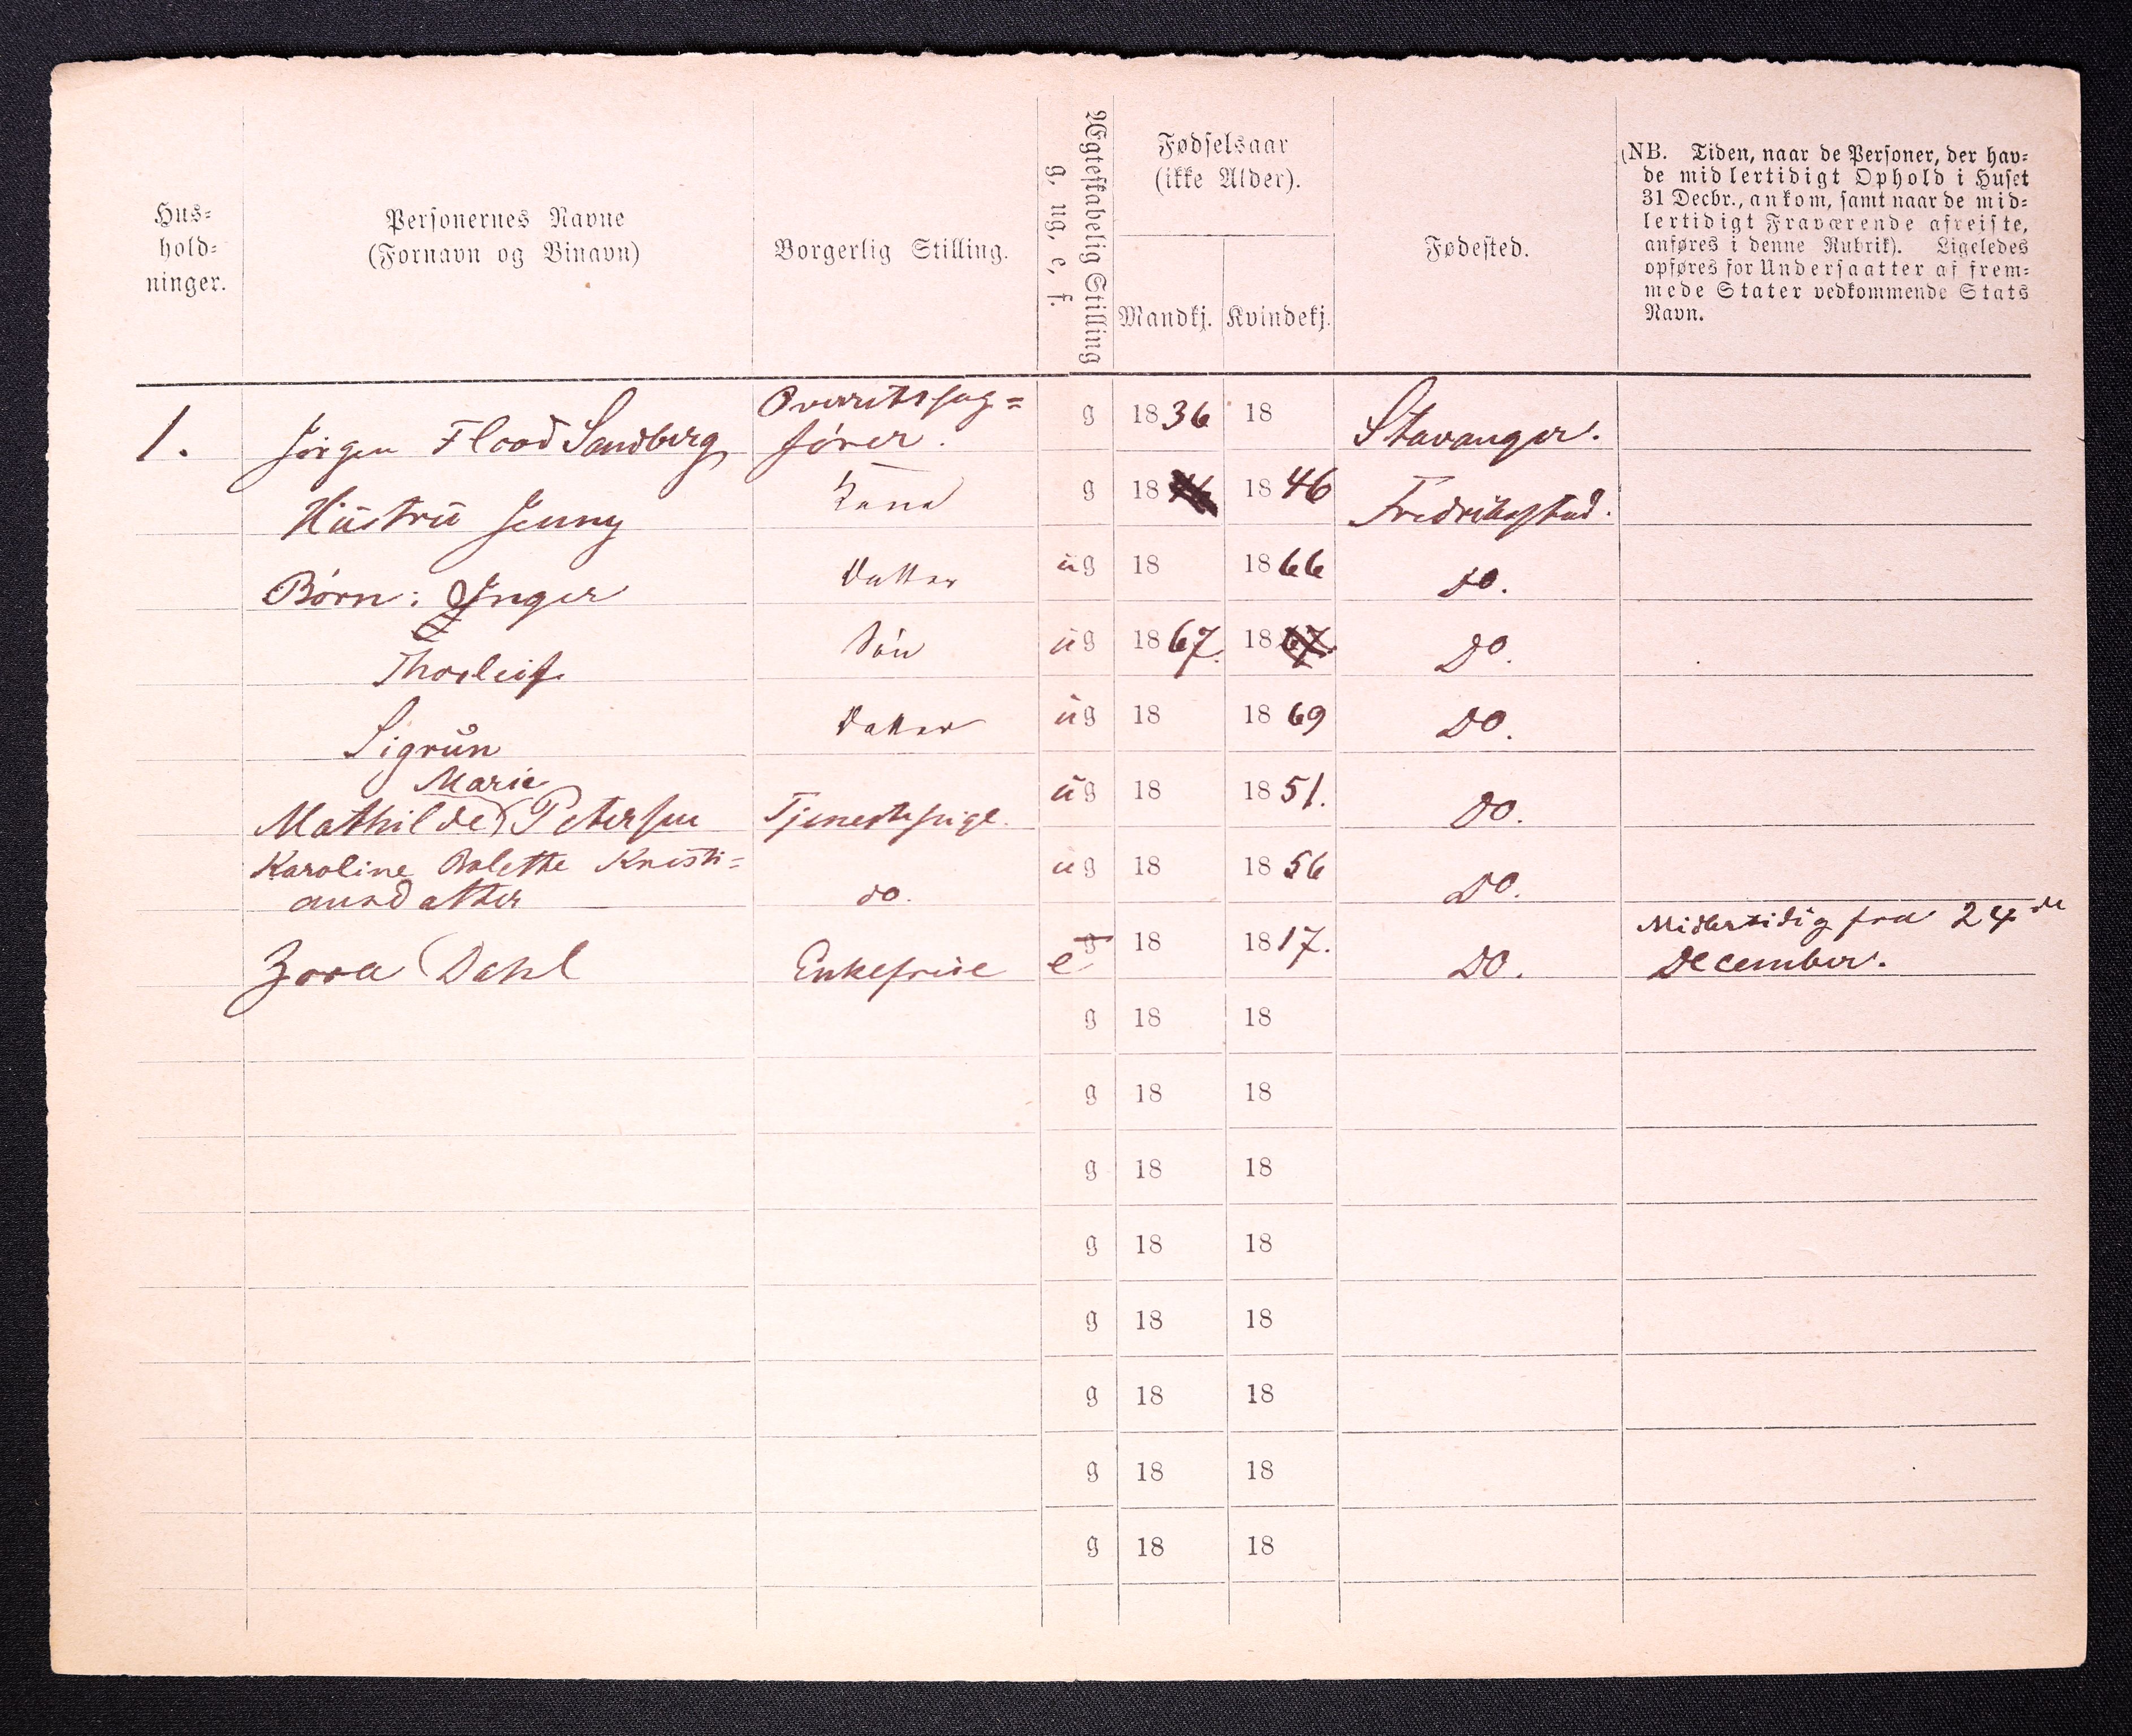 Hus-
hold-
ninger.
Personernes Navne
(Fornavn og Binavn)
Borgerlig Stilling.
Ægteskabelig Stilling
g, ug, e, f.
Fødselsaar
(ikke Alder).
Mandkj. Kvindekj.
Fødested.
(NB. Tiden, naar de Personer, der hav-
de midlertidigt Ophold i Huset
31 Decbr., ankom, samt naar de mid-
lertidigt Fraværende afreiste,
anføres i denne Rubrik). Ligeledes
opføres for Undersaatter af frem-
mede Stater vedkommende Stats
Navn.
1. Jörgen Flood Sandberg Overretssag= fører. g 1836 18 Stavanger.
Hustru Jenny Kone g 18 1846 Fredrikstad.
Børn: Inger Datter ug 18 1866 do.
Thorleif Sön ug 1867. 18 Do.
Sigrun Datter ug 18 1869 Do.
Marie
Mathilde Petersen Tjenestepige ug 18 1851. Do.
Karoline Bolette Kristi=
ansdatter do. ug 18 1856 Do.
Zora Dahl Enkefrue e g 18 1817. Do. Midlertidig fra 24de
December.
g 18 18
g 18 18
g 18 18
g 18 18
g 18 18
g 18 18
g 18 18
g 18 18